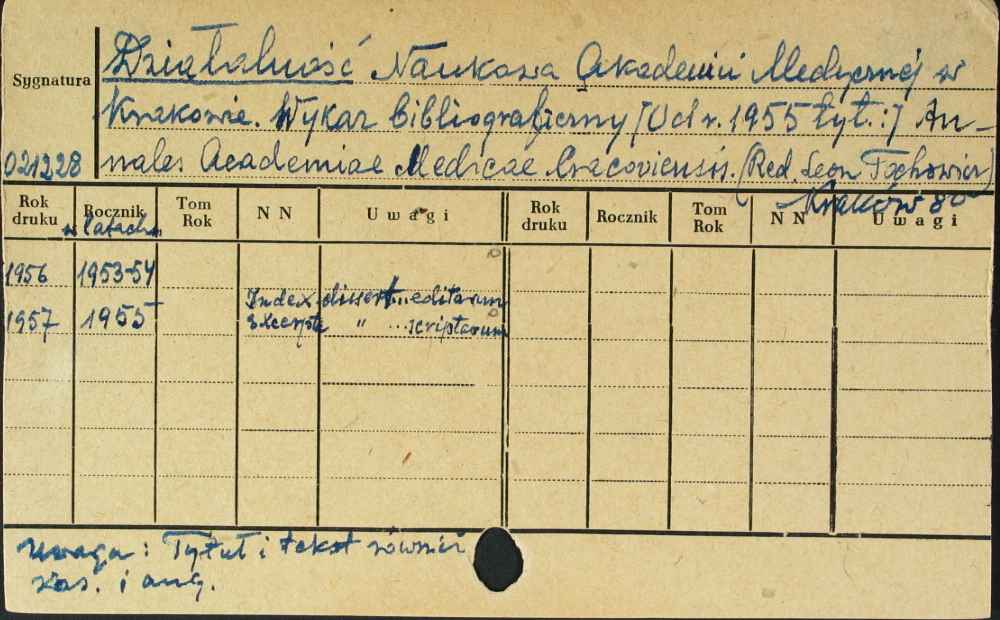 Działalność Naukowa Akademii Medycznej w
Sygnatura
Krakowie. Wykaz bibliograficzny [Od r. 1955 tyt.:] An-
021228 nales Academiae Medicae Cracoviensis. (Red. Leon Tochowicz)
Kraków 8°
Rok druku Rocznik Tom Rok N N Uwagi Rok druku Rocznik Tom Rok N N Uwagi
w latach
1956 1953-54
Index dissert... editarum
1957 1955 Excerpta " ... scriptarum
Uwaga: Tytuł i tekst również
ros. i ang.